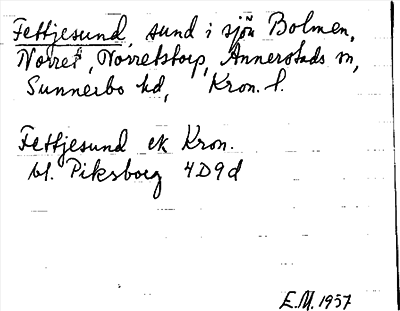 Fettjesund, sund i sjön Bolmen,
Norret, Norretstorp, Annerstads sn,
Sunnerbo hd, Kron. l.
Fettjesund ek Kron.
bl. Piksborg 4D9d
E.M. 1957